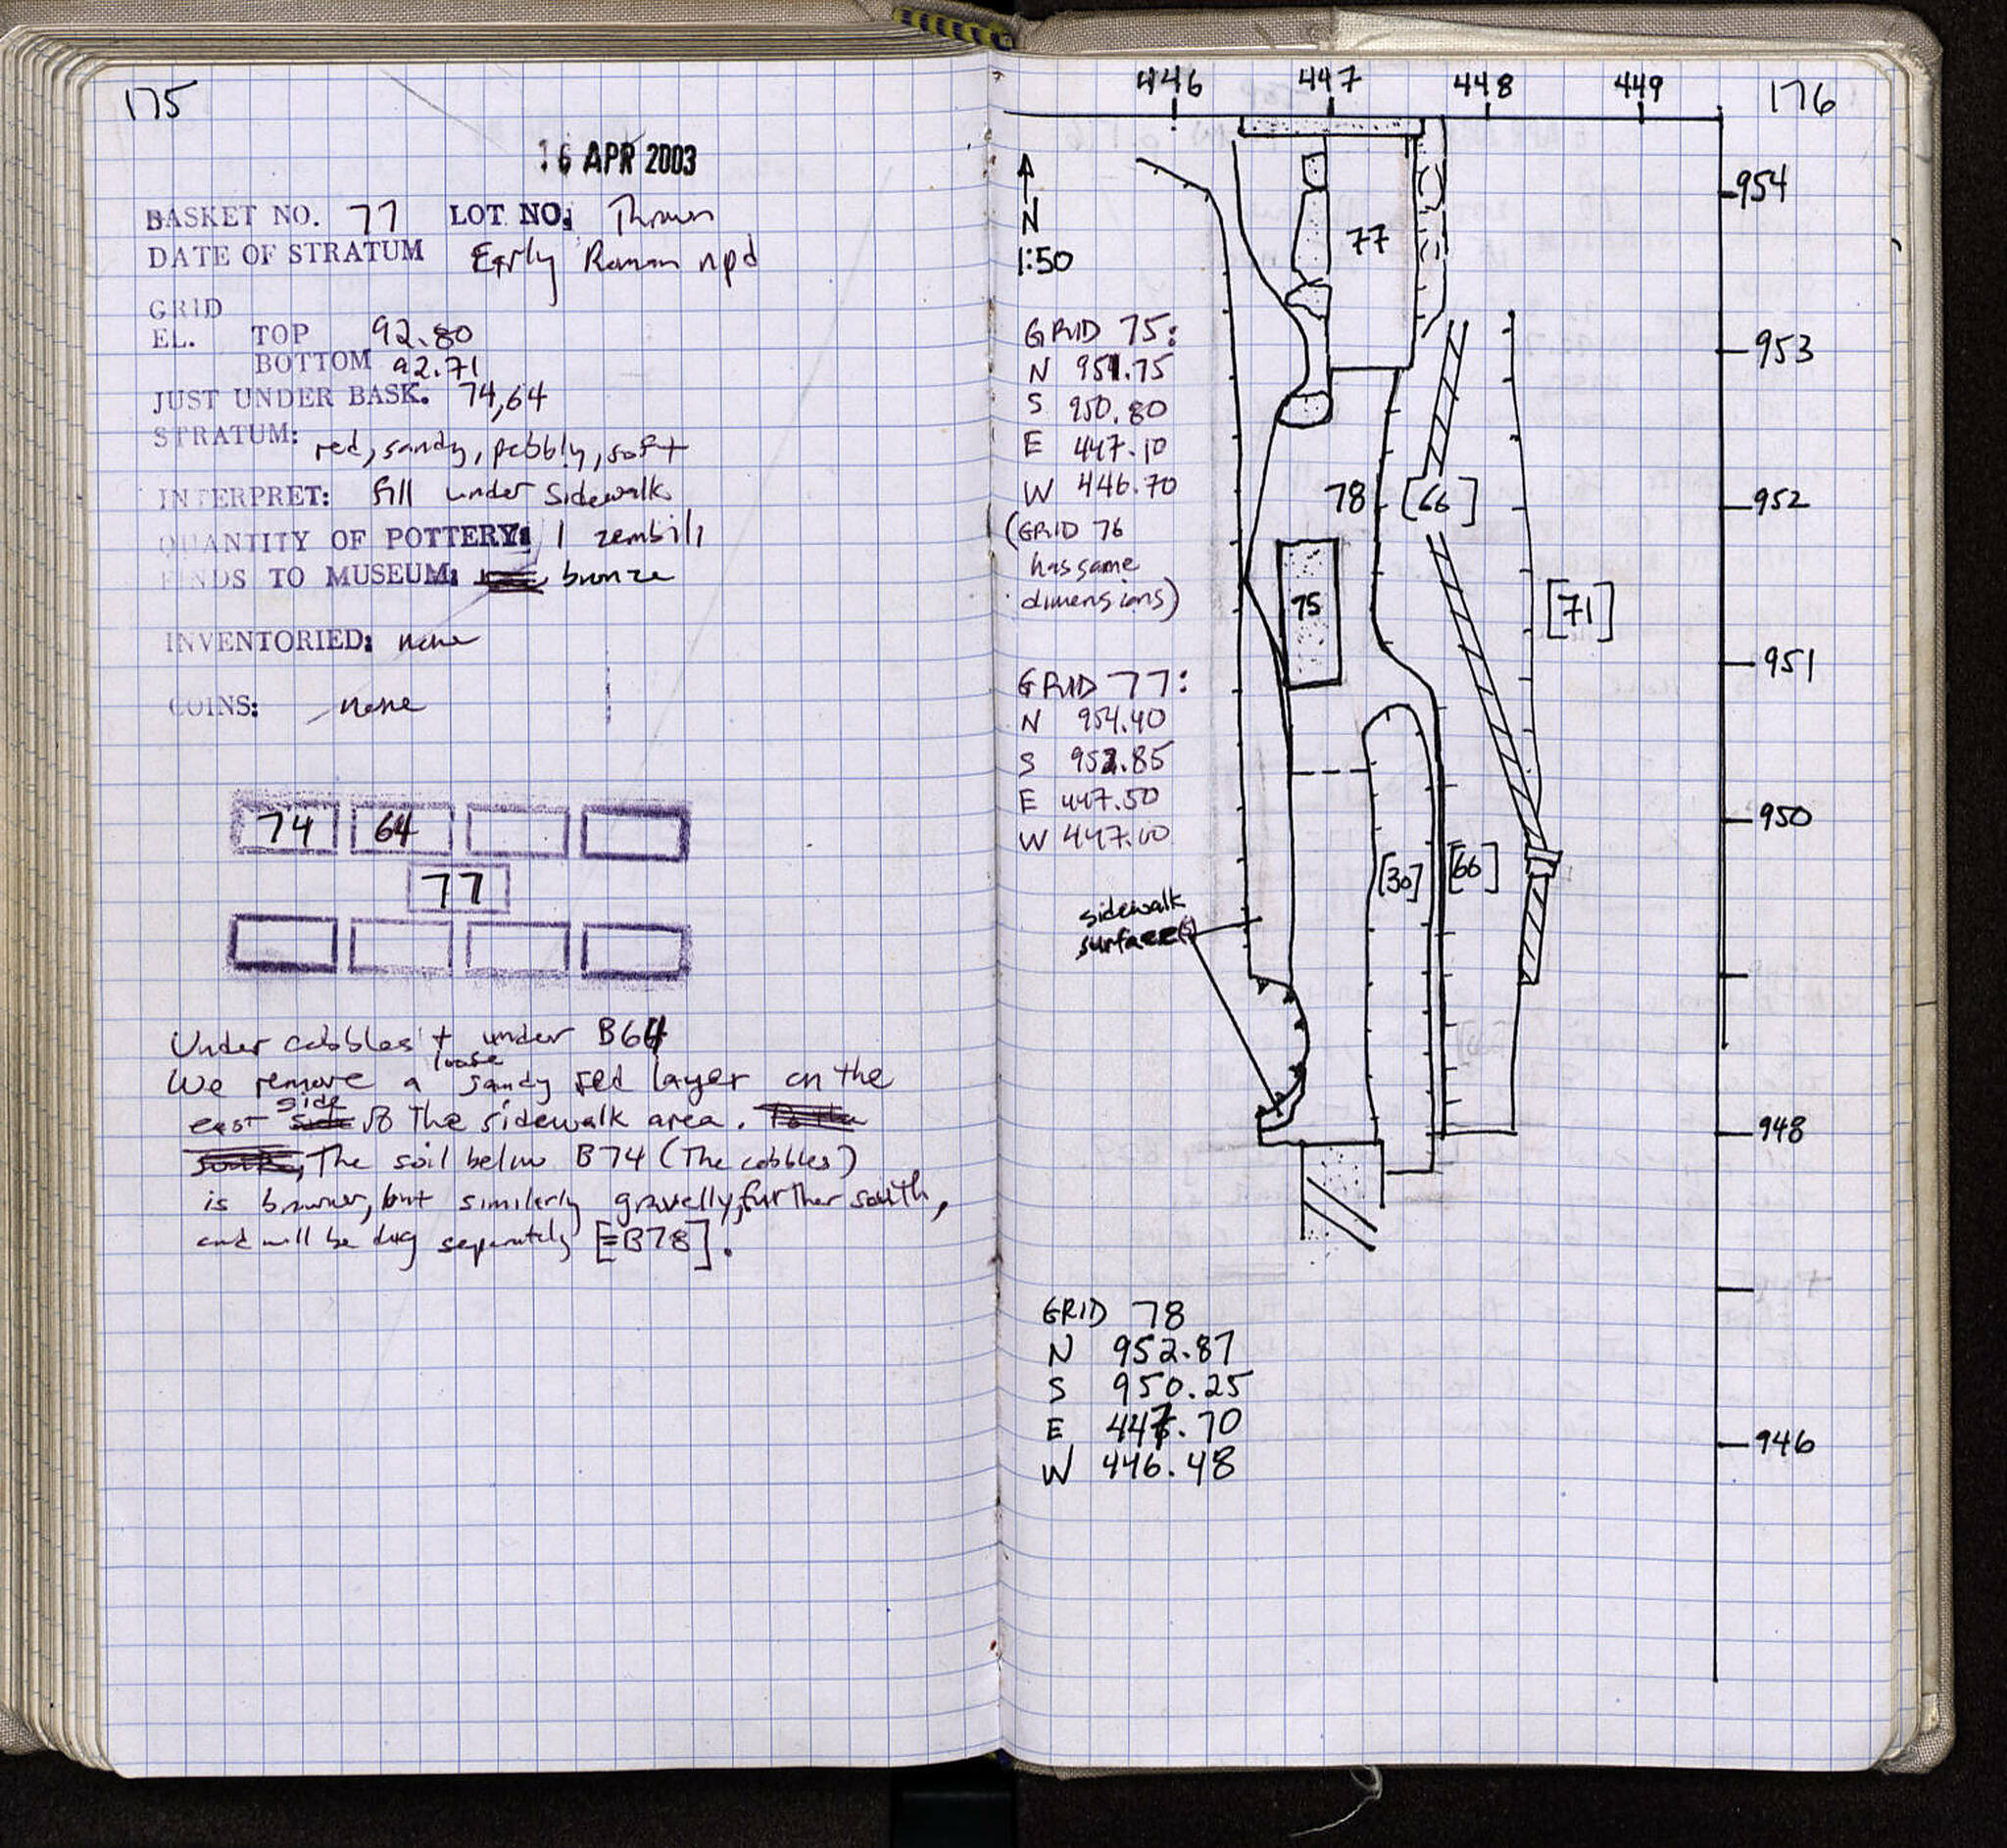 175
16 APR 2003
BASKET NO. 77 LOT NO: Thrown
DATE OF STRATUM Early Roman npd
GRID
EL. TOP 92.80
BOTTOM 92.71
JUST UNDER BASK. 74,64
STRATUM: red, sandy, pebbly, soft
INTERPRET: fill under sidewalk
QUANTITY OF POTTERY: 1 zembili
FINDS TO MUSEUM: bronze
INVENTORIED: none
COINS: none
74 64
77
Under cobbles + under B64
We remove a loose sandy red layer on the
east side of the sidewalk area.
The soil below B74 (The cobbles)
is browner, but similarly gravelly, further south,
and will be dug separately [=B78].
446 447 448 449 176
N
1:50
GRID 75:
N 951.75
S 950.80
E 447.10
W 446.70
(GRID 76
has same
dimensions)
GRID 77:
N 954.40
S 952.85
E 447.50
W 447.00
sidewalk
surface(s)
77
78 [66]
75
[71]
[30] [66]
954
953
952
951
950
948
946
GRID 78
N 952.87
S 950.25
E 447.70
W 446.48